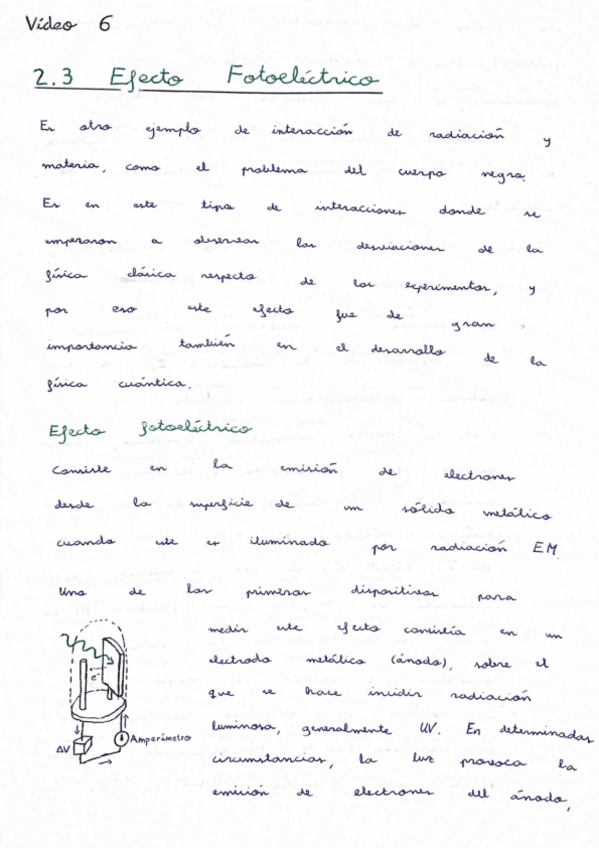 Vídeo 6
2.3 Efecto Fotoeléctrico
Es otro ejemplo de interacción de radiación y
materia, como el problema del cuerpo negro.
Es en este tipo de interacciones donde se
empezaron a observar las desviaciones de la
física clásica respecto de los experimentos, y
por eso este efecto fue de gran
importancia también en el desarrollo de la
física cuántica.
Efecto fotoeléctrico
Consiste en la emisión de electrones
desde la superficie de un sólido metálico
cuando este es iluminado por radiación EM.
Uno de los primeros dispositivos para
medir este efecto consistía en un
electrodo metálico (ánodo), sobre el
que se hace incidir radiación
luminosa, generalmente UV. En determinadas
circunstancias, la luz provoca la
emisión de electrones del ánodo,
e⁻
ΔV
Amperímetro